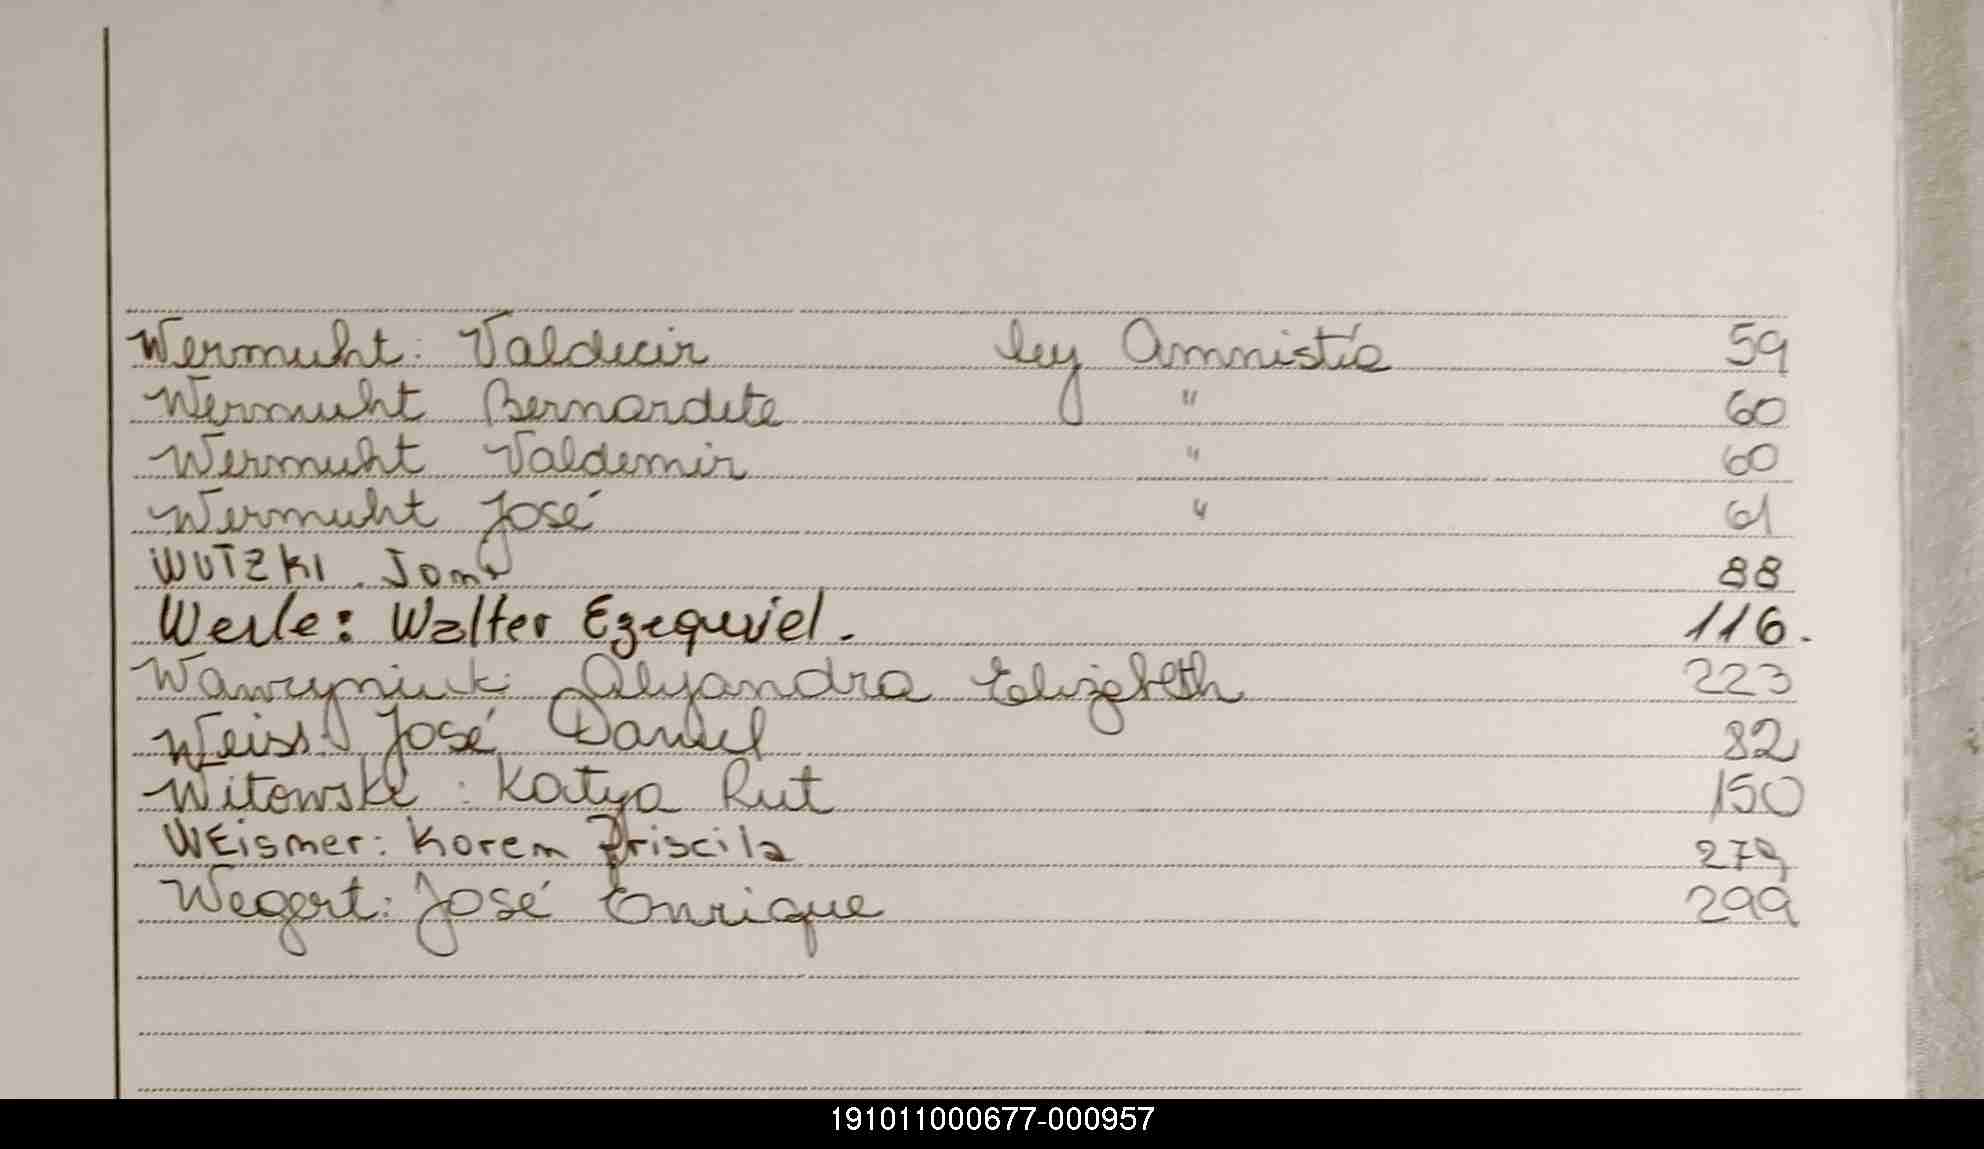 Wermuht: Valdecir ley Amnistía 59
Wermuht Bernardete " 60
Wermuht Valdemir " 60
Wermuht José " 61
WUTZKI. 88
Werle: Walter Ezequiel. 116.
Wawryniuk: Alejandra Elizabeth 223
Weiss: José Daniel 82
Witowski: Katya Rut 150
WEismer: Korem Priscila 279
Wegert: José Enrique 299
191011000677-000957